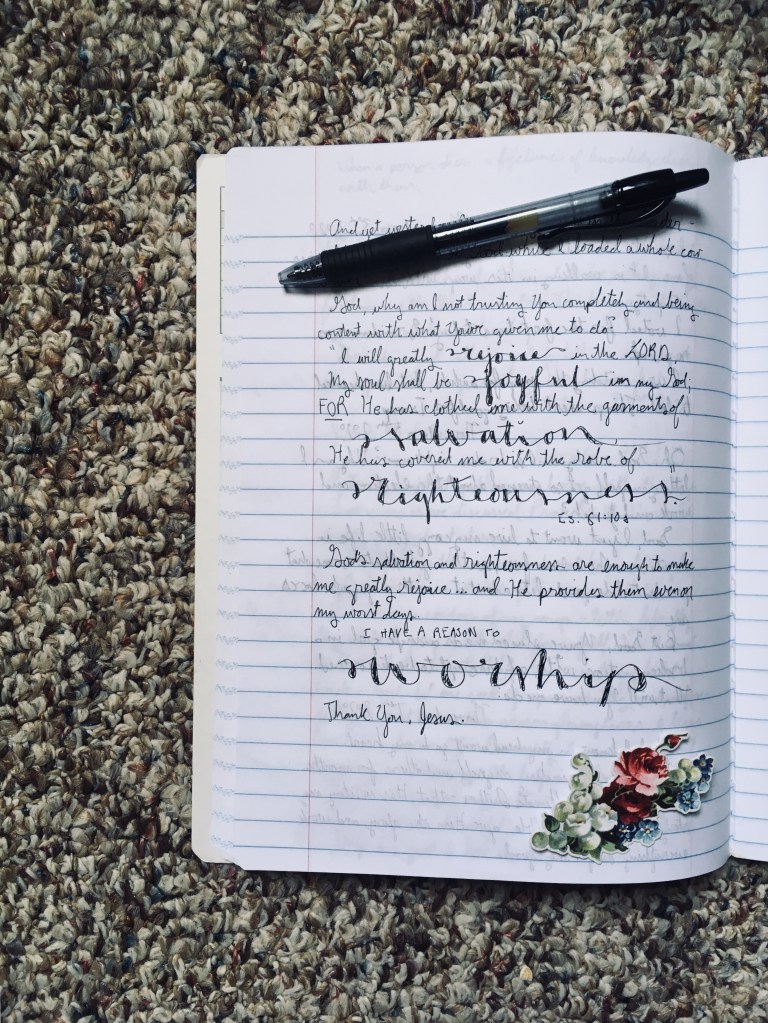 And yet
while I loaded a whole
God, why am I not trusting You completely and being
content with what You've given me to do?
"I will greatly rejoice in the LORD,
My soul shall be joyful in my God;
FOR He has clothed me with the garments of
salvation,
He has covered me with the robe of
righteousness."
Is. 61:10a
God's salvation and righteousness are enough to make
me greatly rejoice... and He provides them even on
my worst days.
I HAVE A REASON TO
worship
Thank You, Jesus.